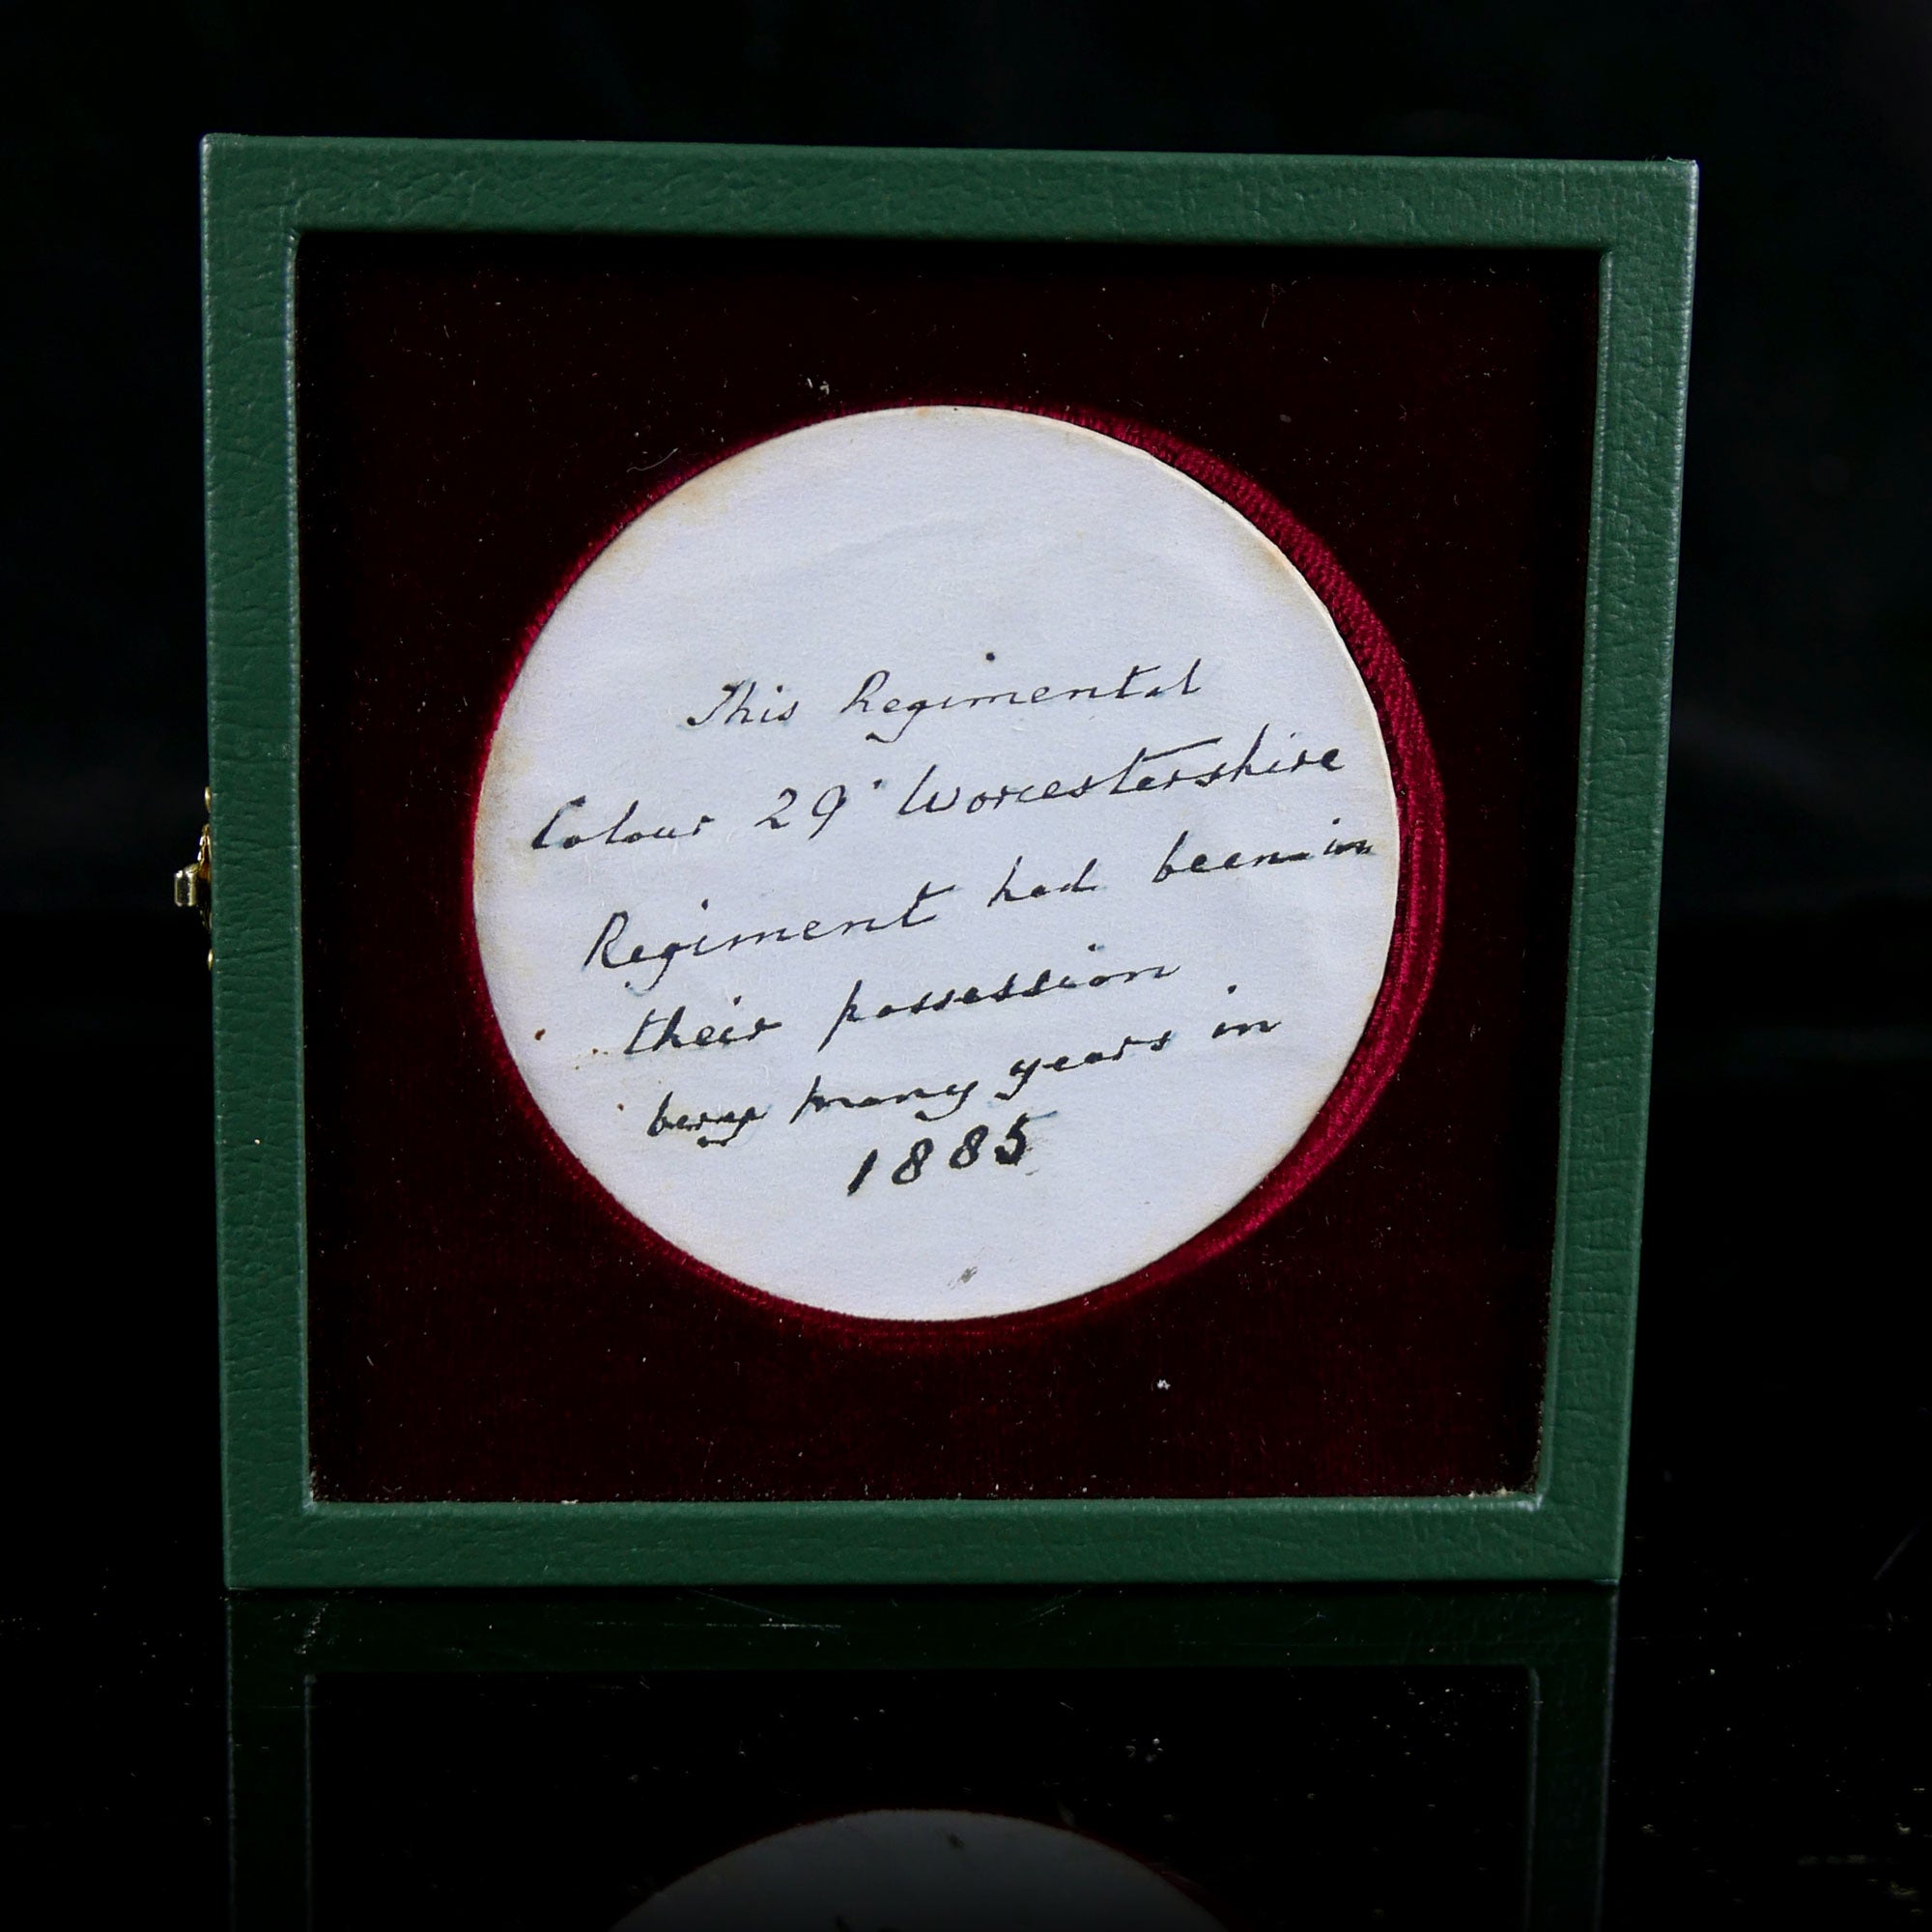 This Regimental
Colour 29 Worcestershire
Regiment had been in
their possession
many years in
1885